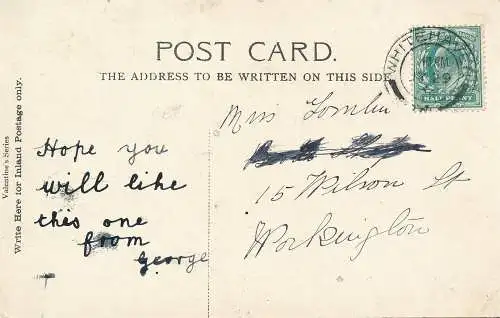 POST CARD.
THE ADDRESS TO BE WRITTEN ON THIS SIDE
WHITEHAVEN
HALF PENNY
Valentine's Series
Write Here for Inland Postage only.
Hope you
will like
this one
from
George
Miss
15 Wilson St
Workington